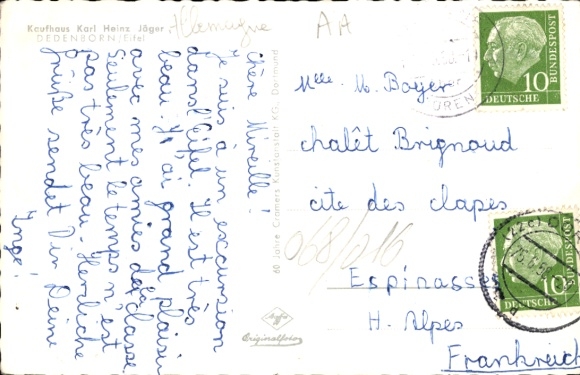 Kaufhaus Karl Heinz Jäger
DEDENBORN/Eifel
Allemagne
AA
chère Mireille!
Je suis à un excursion
dans l'Eifel. Il est très
beau. J'ai grand plaisir
avec mes amies de la classe.
Seulement le temps n'est
pas très beau. Herzliche
Grüße sendet Dir Deine
Inge!
60 Jahre Cramers Kunstanstalt KG., Dortmund
Agfa
Originalfoto
068/016
Mlle. M. Boyer
chalêt Brignoud
cite des clapes
Espinasses
H. Alpes
Frankreich
10
DEUTSCHE
BUNDESPOST
DÜREN
10
DEUTSCHE